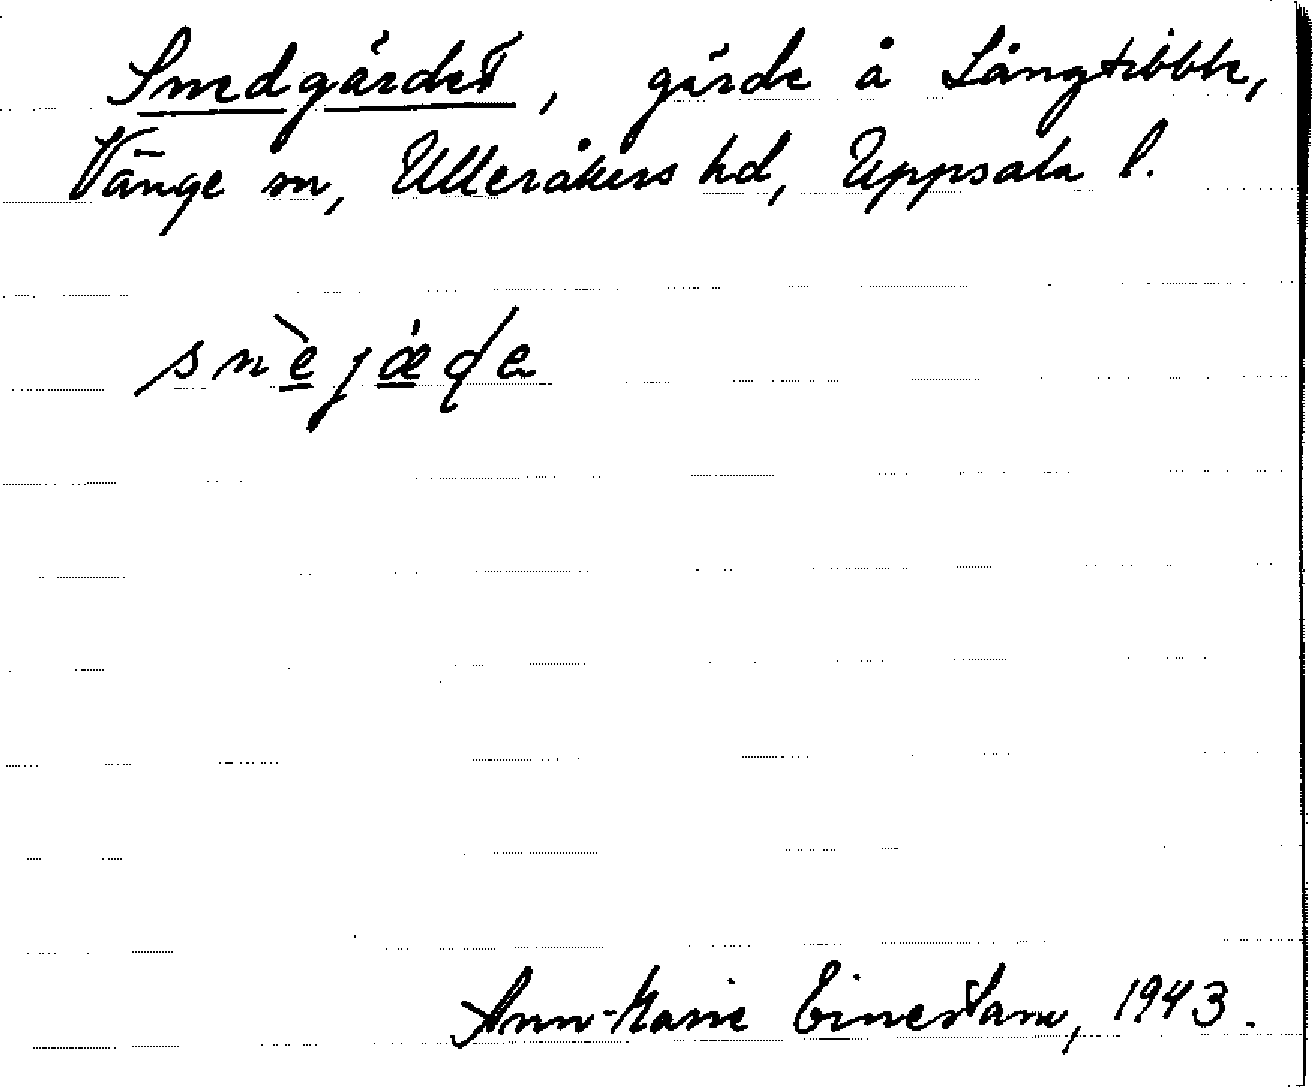 Smedgärdet, gärde å Långtibble,
Vänge sn, Ulleråkers hd, Uppsala l.
snè̲jǽ̲ḍe
Ann-Marie 1943.